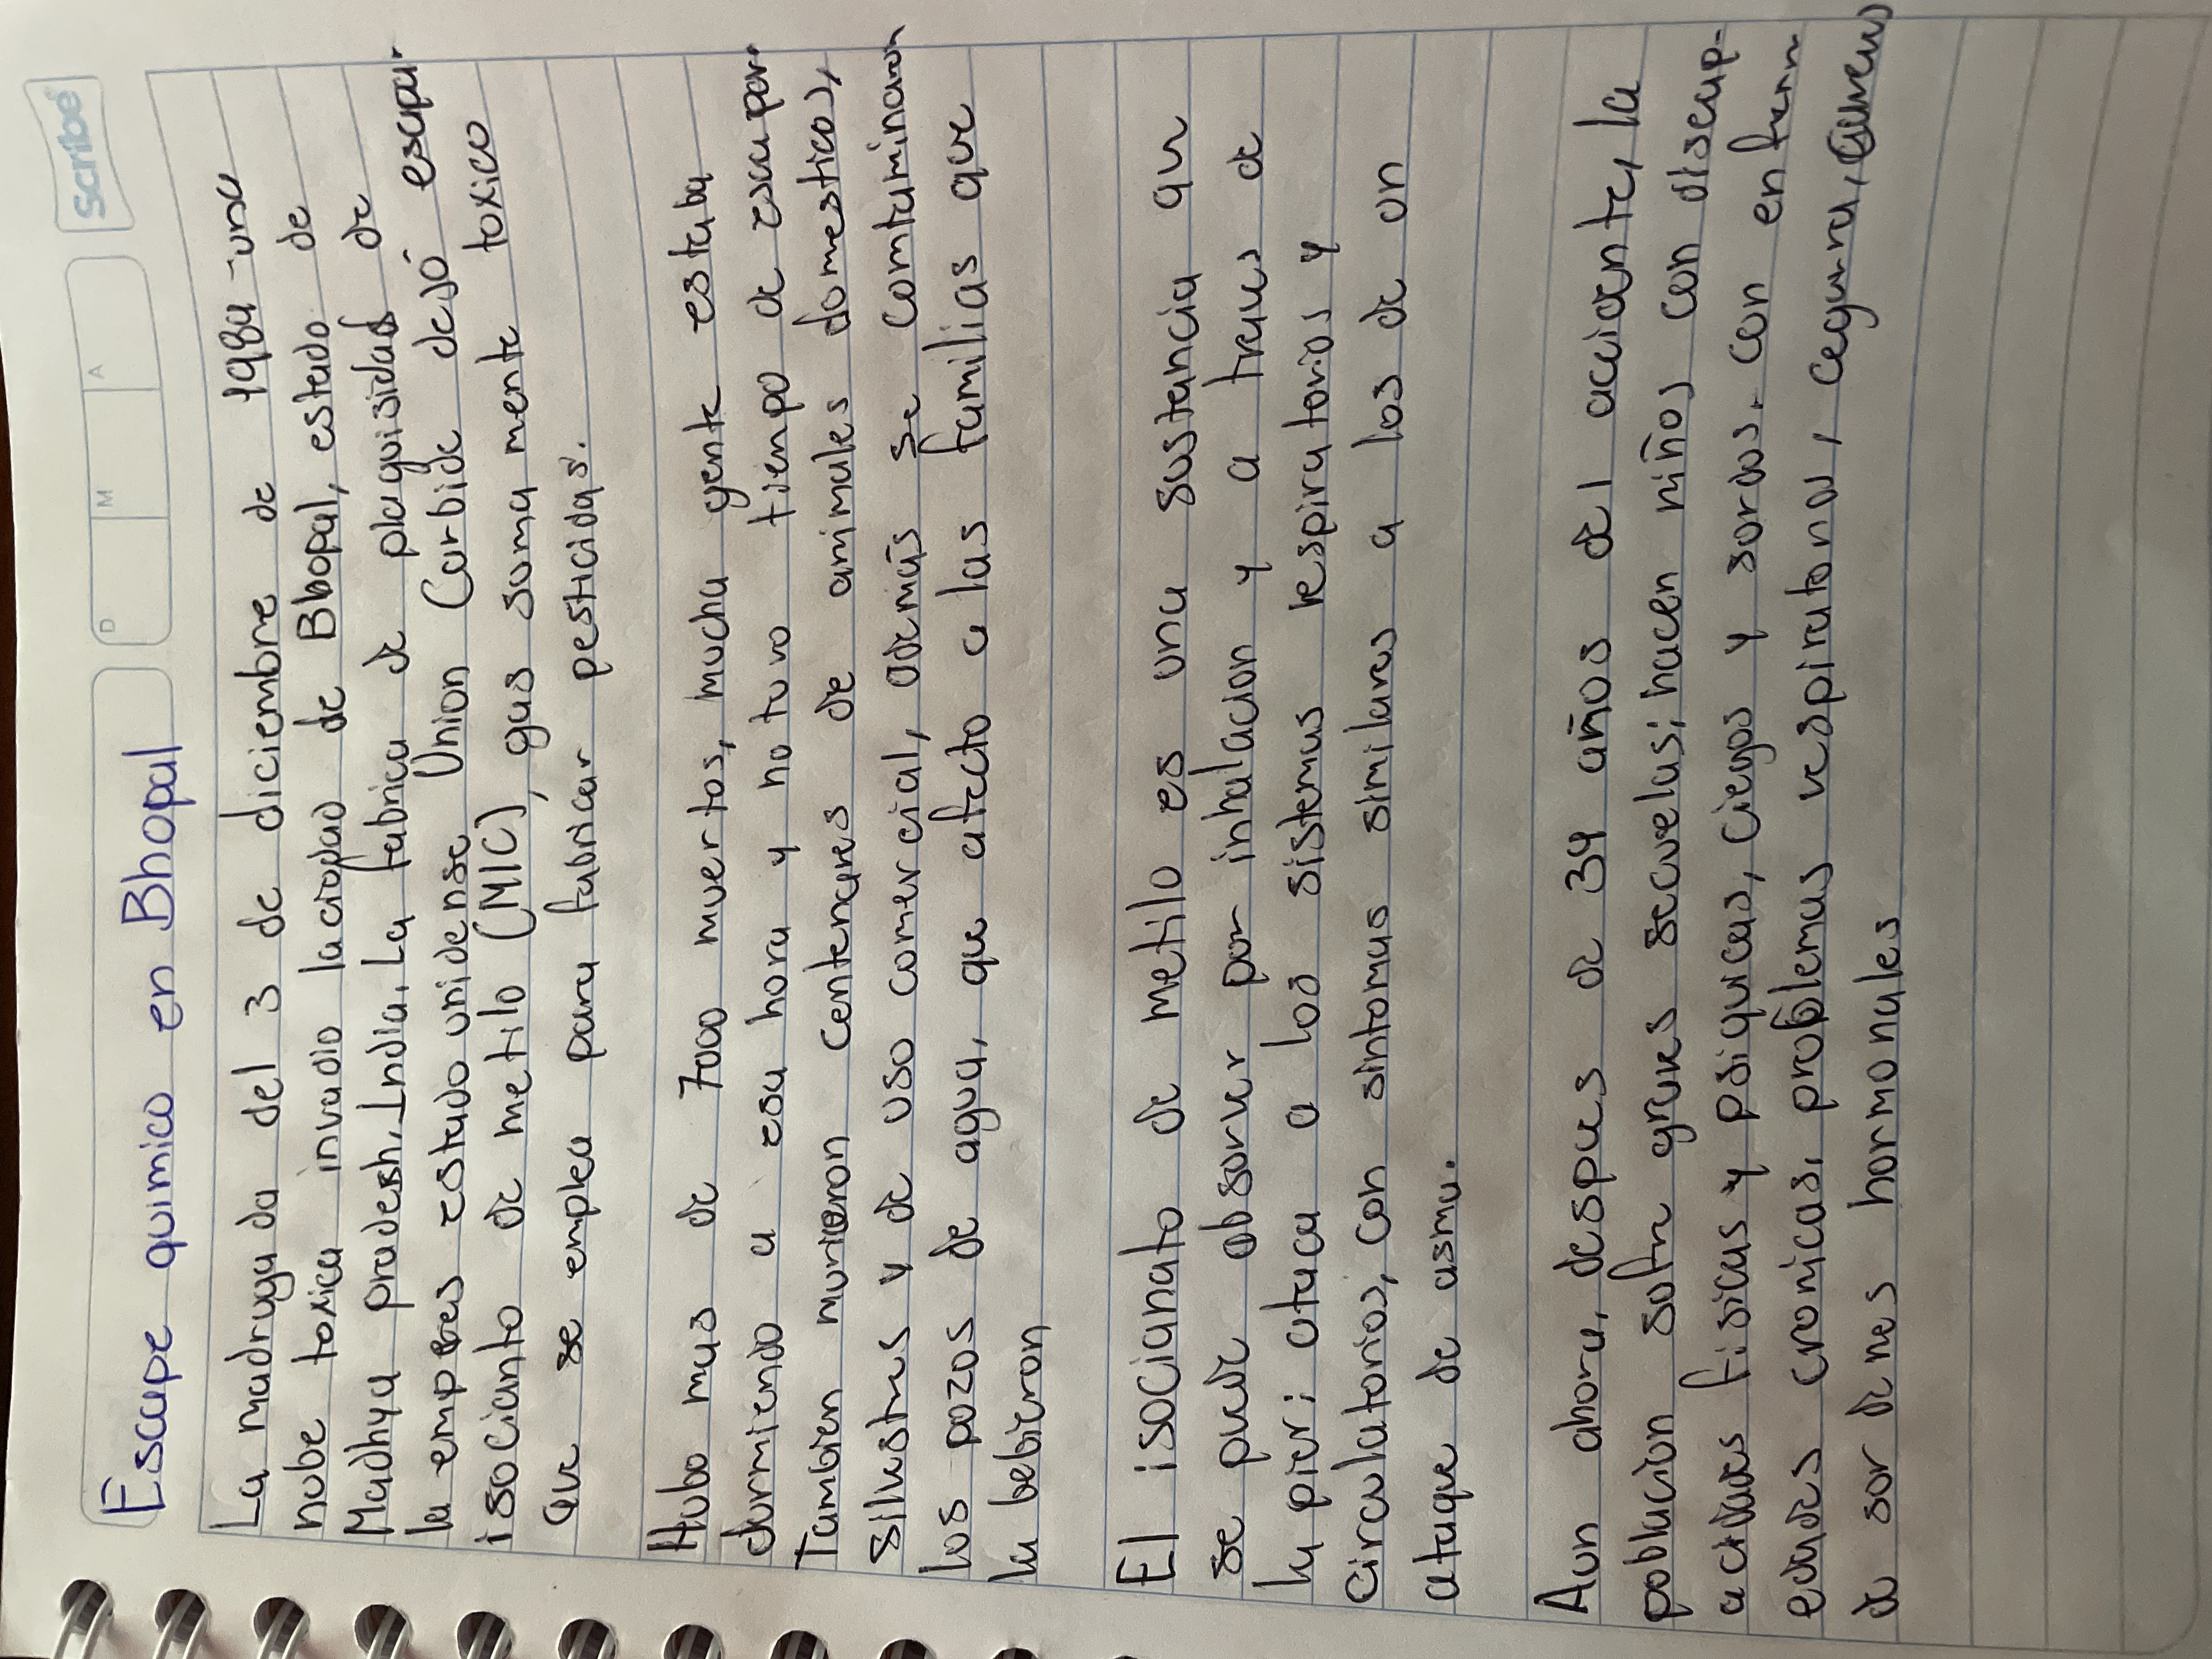 Scribe
D M A
Escape quimico en Bhopal
La madrugada del 3 de diciembre de 1984 una
nube toxica invadio la ciudad de Bhopal, estado de
Madhya pradesh, India. La fabrica de plaguisidad de
la empres estadounidense Union Carbide dejó escapar
isocianto de metilo (MIC), gas suma mente toxico
que se emplea para fabricar pesticidas.
Hubo mas de 7000 muertos, mucha gente estaba
durmiendo a esa hora y no tuvo tiempo de escapar.
Tambien murieron centenares de animales domesticos,
silvestres y de uso comercial, además se contaminaron
los pozos de agua, que afecto a las familias que
la bebieron
El isocianato de metilo es una sustancia qu
se puede absorver por inhalacion y a traves de
la piel; ataca a los sistemas respiratorios y
Circulatorios, con sintomas similares a los de un
ataque de asma.
Aun ahora, despues de 34 años del accidente, la
poblacion sufre graves secuelas; nacen niños con discap-
acidades fisicas y psiquicas, ciegos y sordos. con enferm
edades cronicas, problemas respiratorios, ceguera, cancer
de sordenes hormonales